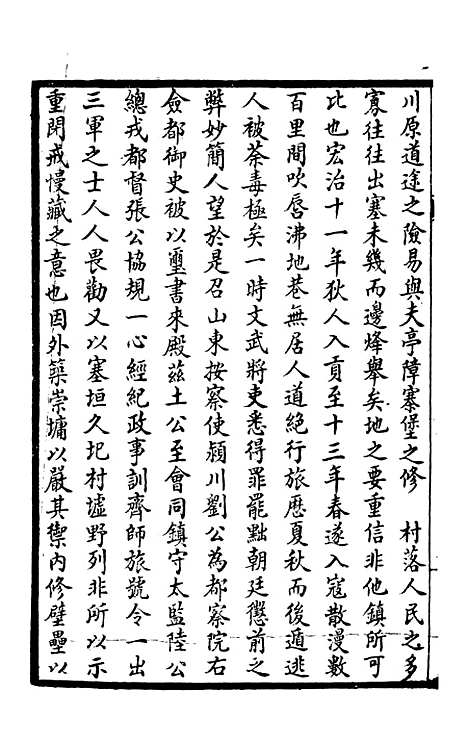 川原道途之險易與夫亭障寨堡之修　村落人民之多
寡往往出塞未幾而邊烽舉矣地之要重信非他鎮所可
比也宏治十一年狄人入貢至十三年春遂入寇散漫數
百里間吹唇沸地巷無居人道絕行旅歷夏秋而後遁逃
人被荼毒極矣一時文武將吏悉得罪罷黜朝廷懲前之
弊妙簡人望於是召山東按察使潁川劉公為都察院右
僉都御史被以璽書來殿茲土公至會同鎮守太監陸公
總戎都督張公協規一心經紀政事訓齊師旅號令一出
三軍之士人人畏勸又以塞垣久圮村墟野列非所以示
重閉戒慢藏之意也因外築崇墉以嚴其禦內修壁壘以